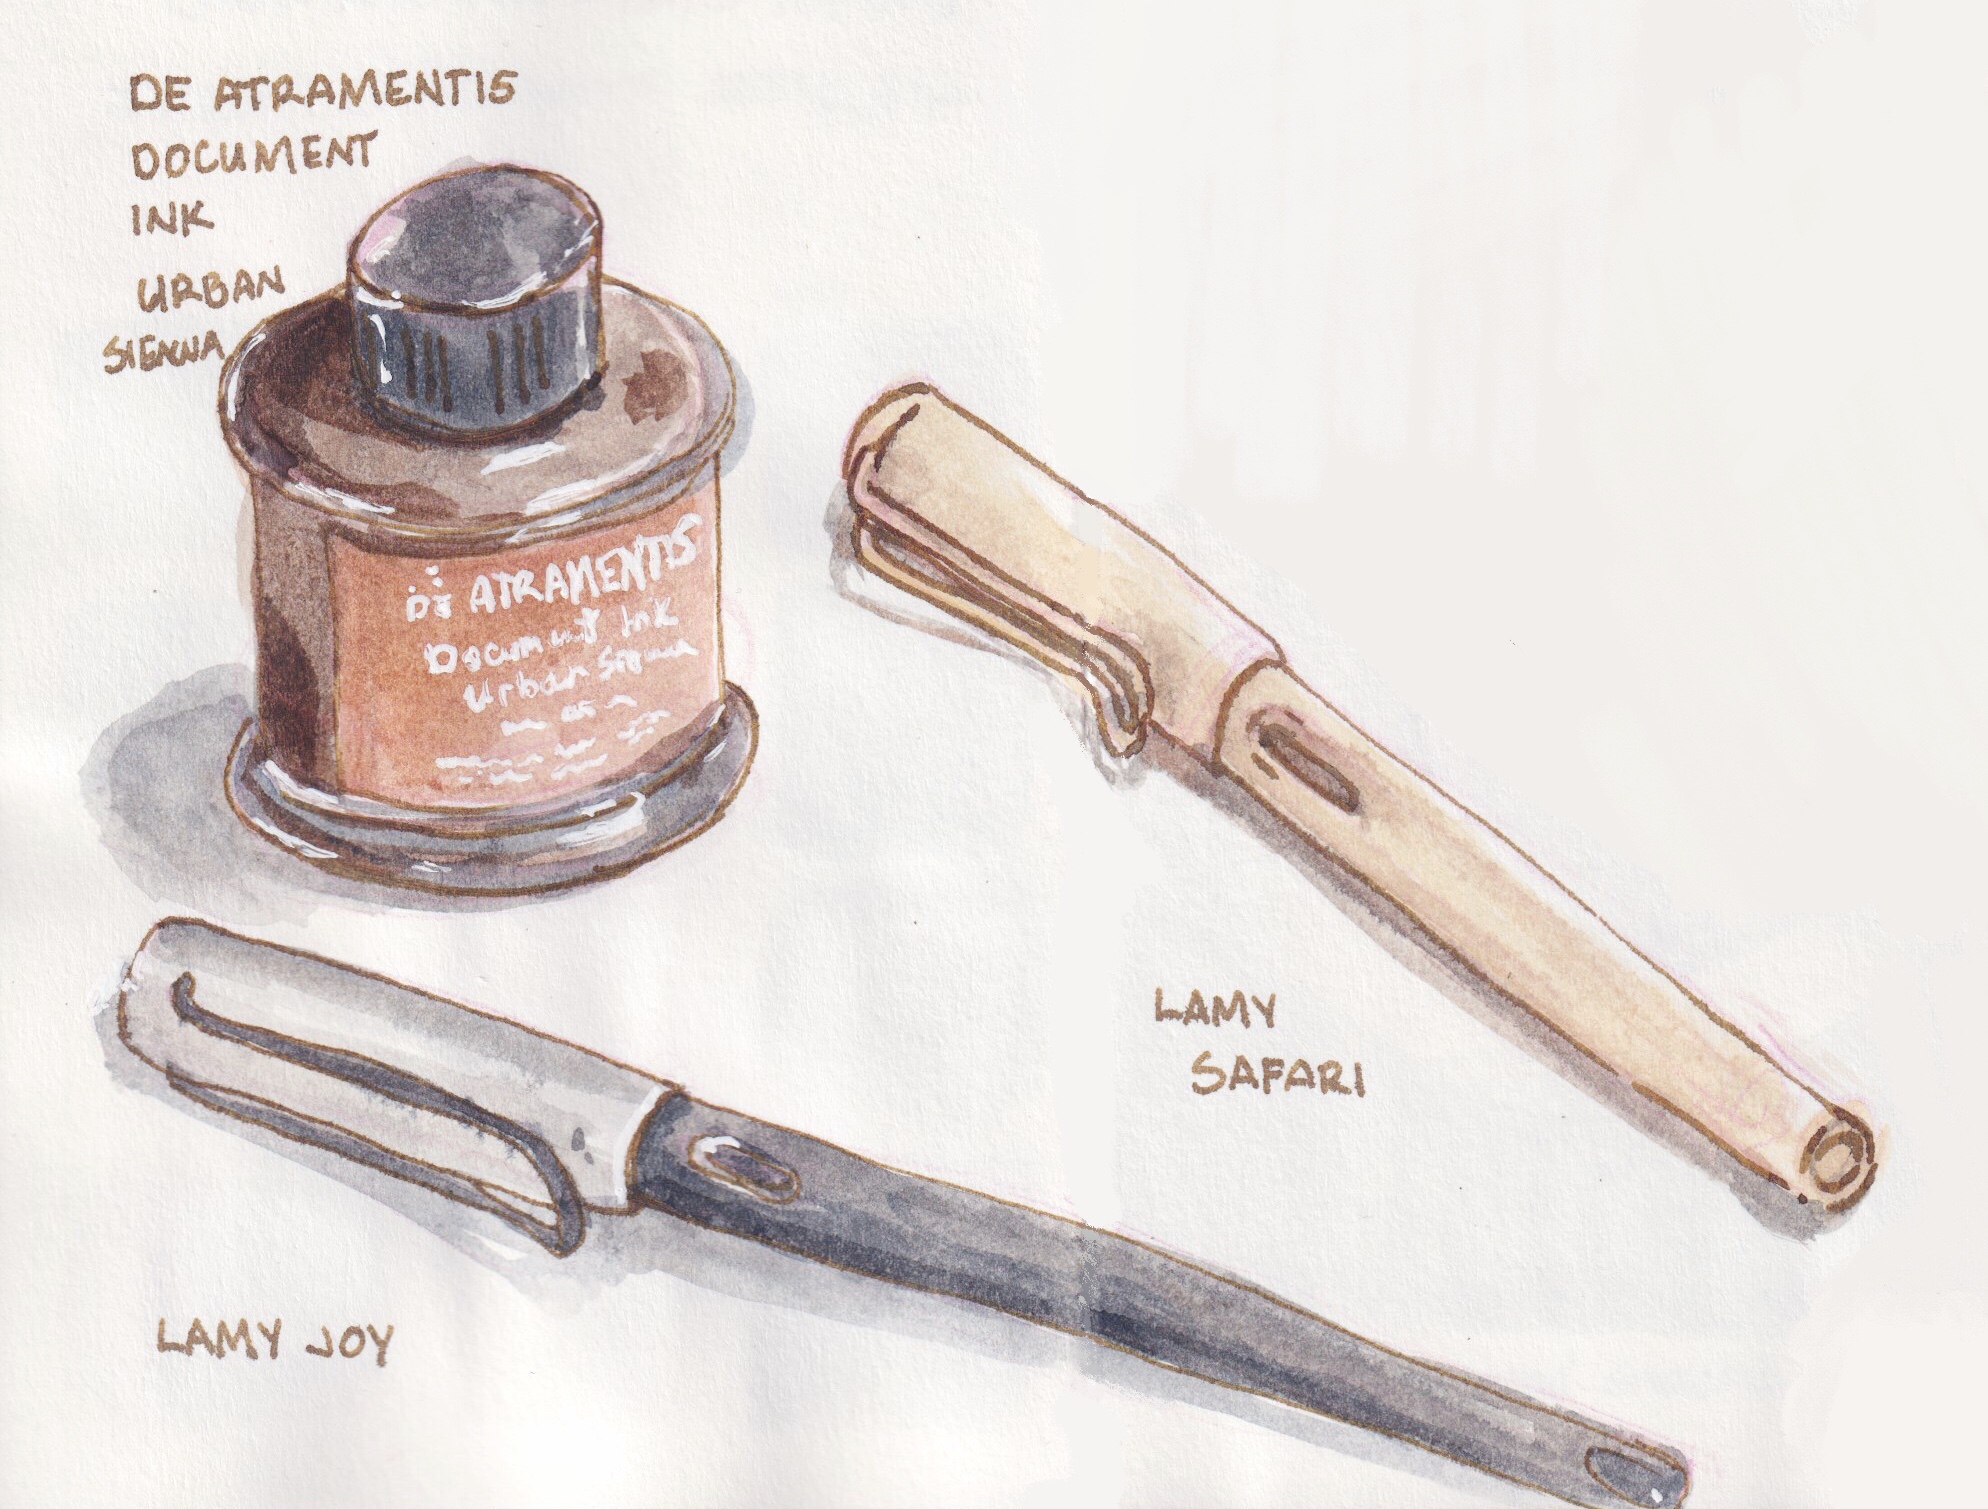 DE ATRAMENTIS
DOCUMENT
INK
URBAN
SIENNA
DE ATRAMENTIS
Document Ink
Urban Sienna
LAMY
SAFARI
LAMY JOY